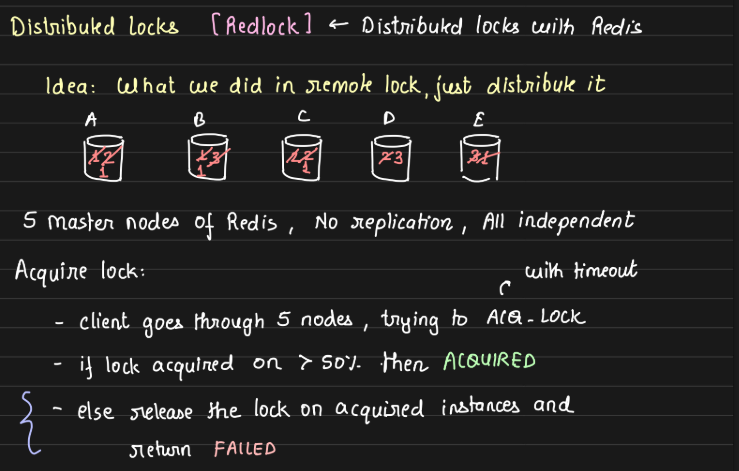 Distributed Locks [Redlock] ← Distributed locks with Redis
Idea: What we did in remote lock, just distribute it
A B C D E
5 master nodes of Redis, No replication, All independent
Acquire lock:
with timeout
- client goes through 5 nodes, trying to ACQ-LOCK
- if lock acquired on > 50% then ACQUIRED
- else release the lock on acquired instances and
return FAILED